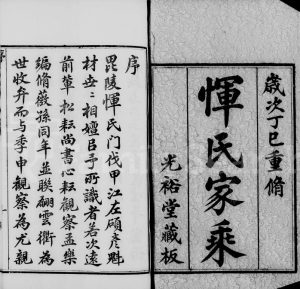 歲次丁巳重脩
惲氏家乘
光裕堂藏板
序
毘陵惲氏門伐甲江左碩彥魁
材世世相嬗吕予所識者若次遠
前輩松耘尚書心耘觀察孟樂
編脩薇孫同年並聯翩雲衢為
世收弁而与季申觀察為尤親